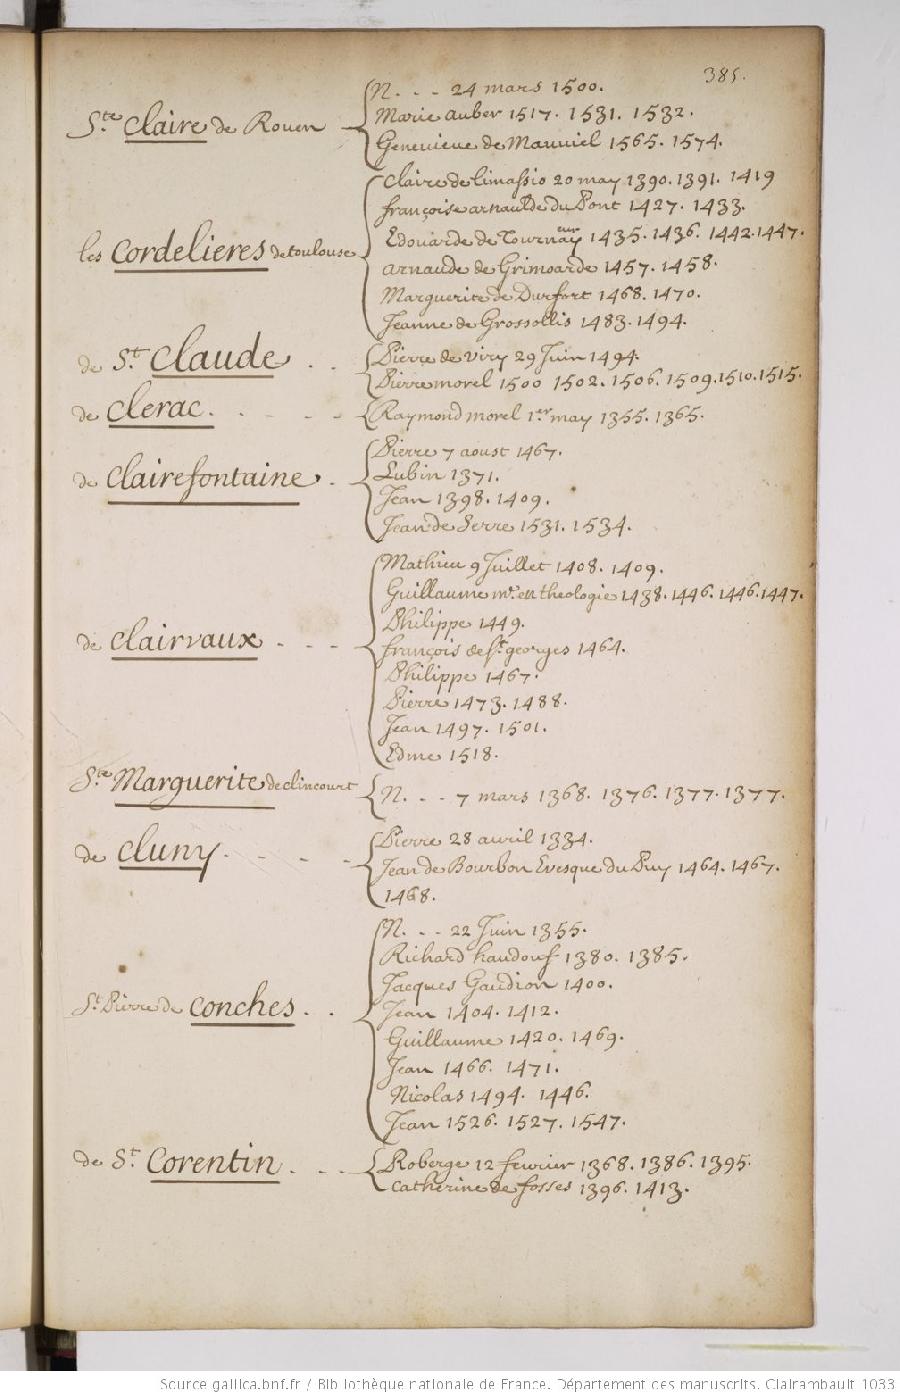 385.
Ste Claire de Rouen
N. . . 24 mars 1500.
Marie auber 1517. 1531. 1532.
Genevieve de Manniel 1565. 1574.
les Cordelieres de toulouse
Claire de limassio 20 may 1390. 1391. 1419
françoise arnaulde du Pont 1427. 1433.
Edouarde de Tournay 1435. 1436. 1442. 1447.
arnaude de Grimoarde 1457. 1458.
Marguerite de Durfort 1468. 1470.
Jeanne de Grossollis 1483. 1494.
de St. Claude . .
Pierre de viry 29 Juin 1494.
Pierre morel 1500 1502. 1506. 1509. 1510. 1515.
de Clerac. . - - -
Raymond morel 1er may 1355. 1365.
de Clairefontaine .
Pierre 7 aoust 1467.
Lubin 1371.
Jean 1398. 1409.
Jean de Serre 1531. 1534.
de Clairvaux - - -
Mathieu 9 Juillet 1408. 1409.
Guillaume me. en theologie 1438. 1446. 1446. 1447.
Philippe 1449.
françois de St. georges 1464.
Philippe 1467.
Pierre 1473. 1488.
Jean 1497. 1501.
Edme 1518.
Ste Marguerite de clincourt
N. . . . 7 mars 1368. 1376. 1377. 1377.
de Cluny. - - -
Pierre 28 avril 1334.
Jean de Bourbon Evesque du Puy 1464. 1467.
1468.
St Pierre de Conches . .
N. . . 22 Juin 1355.
Richard haudouf 1380. 1385.
Jacques Gaudion 1400.
Jean 1404. 1412.
Guillaume 1420. 1469.
Jean 1466. 1471.
Nicolas 1494. 1446.
Jean 1526. 1527. 1547.
de St. Corentin . . .
Roberge 12 fevrier 1368. 1386. 1395.
Catherine de fosses 1396. 1413.
Source gallica.bnf.fr / Bibliothèque nationale de France. Département des manuscrits. Clairambault 1033